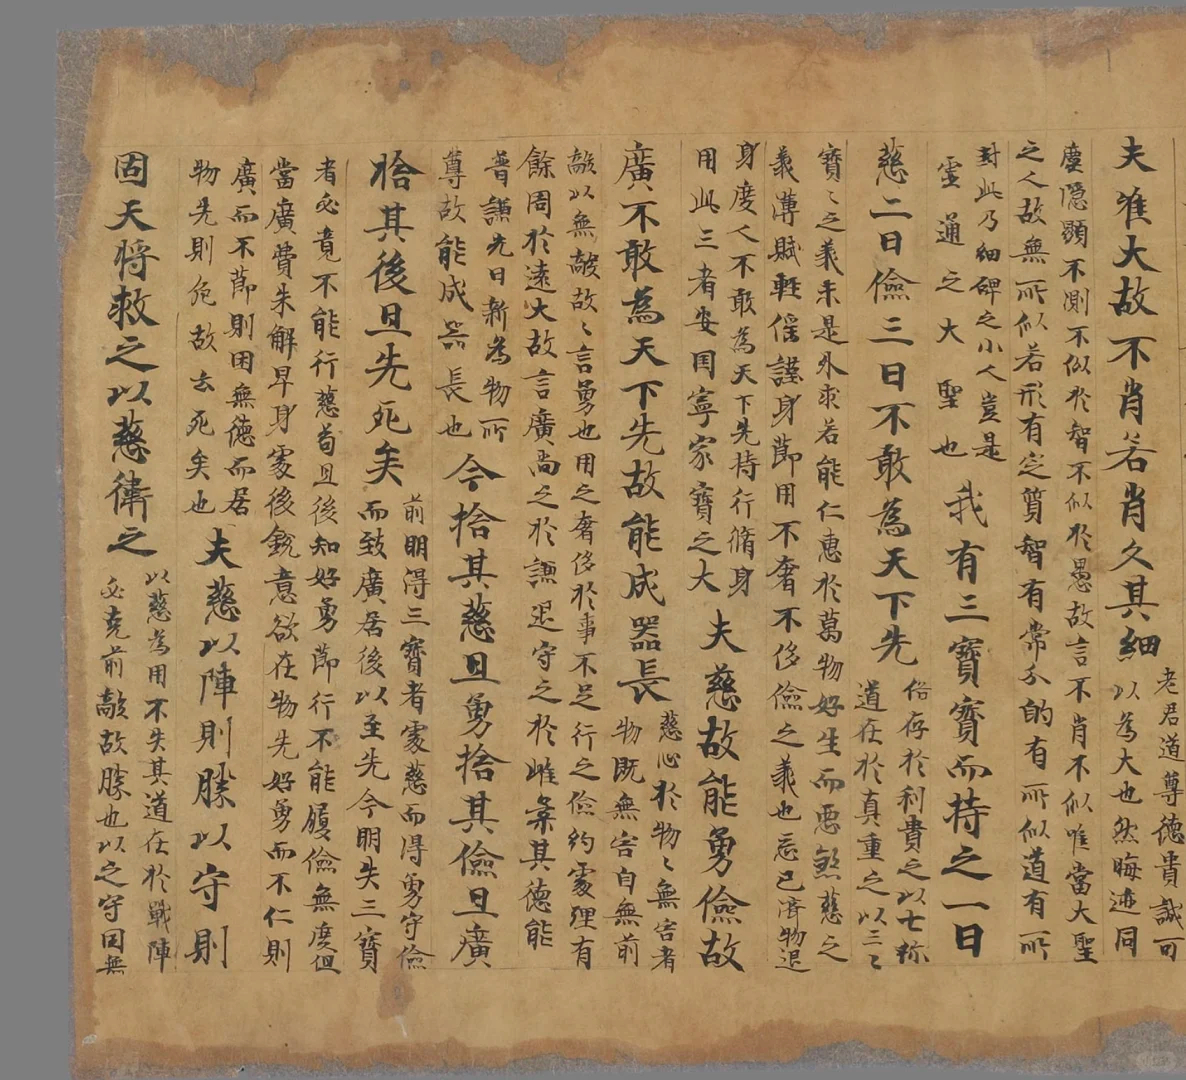 夫唯大故不肖若肖久其細
老君道尊德貴誠可
以為大也然晦迹同
塵隱顯不測不似於智不似於愚故言不肖不似唯當大聖
之人故無所似若形有定質智有常分的有所似道有所
封此乃細碑之小人豈是
靈通之大聖也
我有三寶寶而持之一曰
慈二曰儉三曰不敢為天下先
俗存於利貴之以七珎
道在於真重之以三〻
寶〻之義未是外求若能仁惠於萬物好生而惡煞慈之
義薄賦輕傜謹身節用不奢不侈儉之義也忘己濟物退
身度人不敢為天下先持行脩身
用此三者安国寧家寶之大
夫慈故能勇儉故
廣不敢為天下先故能成器長
慈心於物〻無害者
物既無害自無前
敵以無敵故〻言勇也用之奢侈於事不足行之儉約處理有
餘周於遠大故言廣尚之於謙退守之於雌柔其德能
普謙先日新為物所
尊故能成器長也
今捨其慈且勇捨其儉且廣
捨其後且先死矣
前明得三寶者處慈而得勇守儉
而致廣居後以至先今明失三寶
者必竟不能行慈苟且後知好勇節行不能履儉無度但
當廣費未解早身處後銳意欲在物先好勇而不仁則
廣而不節則困無德而居
物先則危故去死矣也
夫慈以陣則勝以守則
固天將救之以慈衛之
以慈為用不失其道在於戰陣
必克前敵故勝也以之守固無